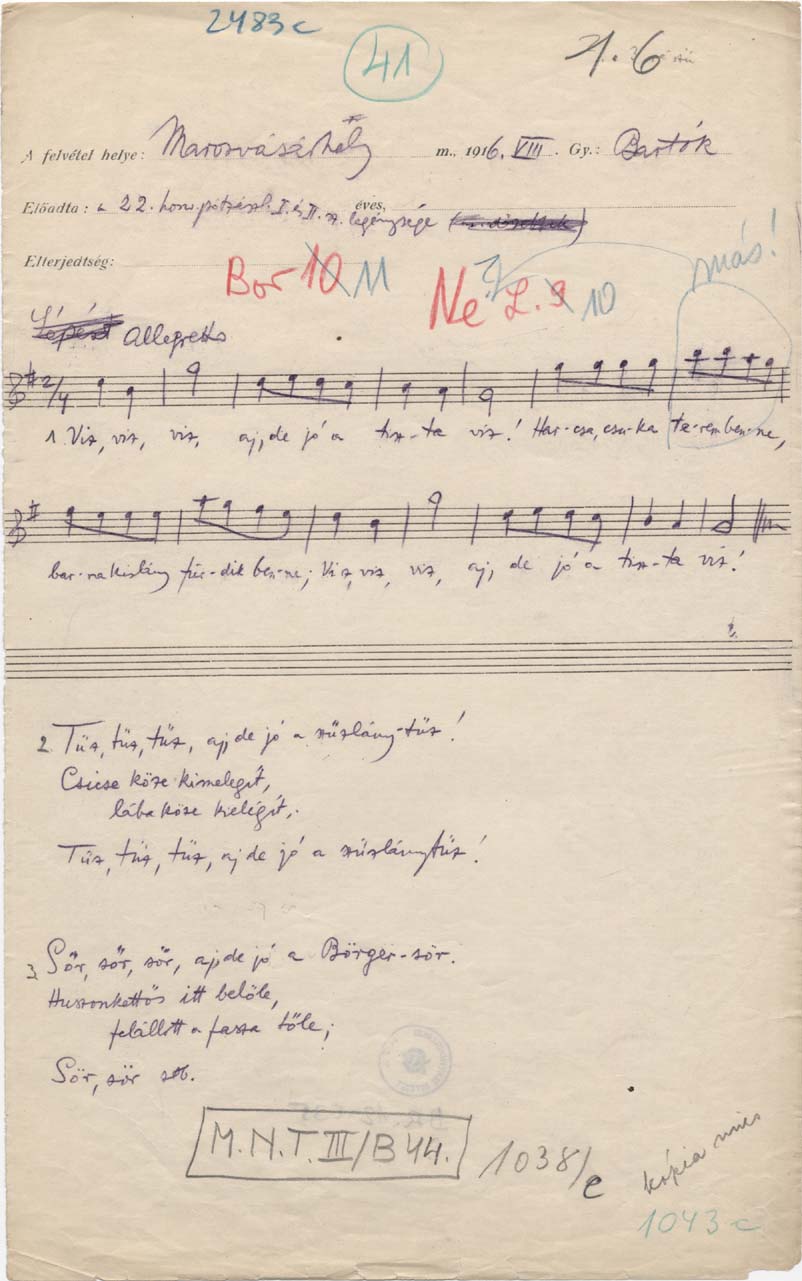 2483c
41
A felvétel helye: Marosvásárhely m., 1916. VIII. Gy.: Bartók
Előadta: a 22. honv. pótzászl. I. és II. sz. legénysége éves,
Elterjedtség:
Bor 10 11 Ne L. 9 10 más!
Lépést Allegretto
2/4
1. Viz, viz, viz, aj, de jó a tisz-ta viz! Har-csa, csu-ka te-rem ben-ne,
bar-na kislány für-dik ben-ne; Viz, viz, viz, aj, de jó a tisz-ta viz!
2. Tüz, tüz, tüz, aj, de jó a szűzlány-tüz!
Csicse köze kimelegít,
lába köze kielégít,
Tüz, tüz, tüz, aj de jó a szűzlánytüz!
3. Sör, sör, sör, aj de jó a Börger-sör.
Huszonkettős itt belőle,
felállott a fasza tőle;
Sör, sör stb.
M.N.T. III/B 44.
1038/e
kópia nincs
1043c